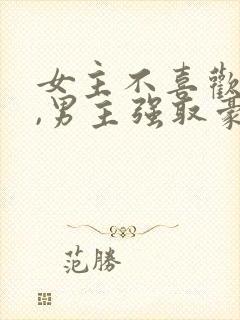 女主不喜歡
,男主强取豪
范勝